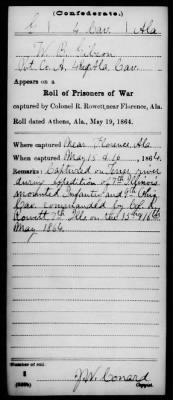 (Confederate.)
4 Cav. Ala
W. B. Gibson
Pvt. Co. A, 4 Reg. Ala. Cav.
Appears on a
Roll of Prisoners of War
captured by Colonel R. Rowett, near Florence, Ala.
Roll dated Athens, Ala., May 19, 1864.
Where captured Near Florence, Ala
When captured May 15 & 16, 1864.
Remarks: Captured on Tenn. river
during expedition of 7th Illinois
mounted Infantry and 9th Ohio
Cav. commanded by Col. R.
Rowett 7th Ills on the 15th & 16th
May 1864
Number of roll:
J.W. Conard
Copyist.